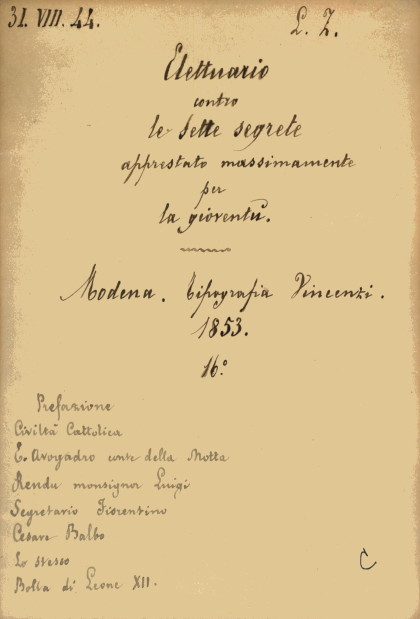 31. VIII. 44.
L. Z.
Elettuario
contro
le Sette segrete
apprestato massimamente
per
la gioventù.
Modena. Tipografia Vincenzi.
1853.
16.°
Prefazione
Civiltà Cattolica
E. Avogadro conte della Motta
Rendu monsignor Luigi
Segretario Fiorentino
Cesare Balbo
Lo stesso
Bolla di Leone XII.
C